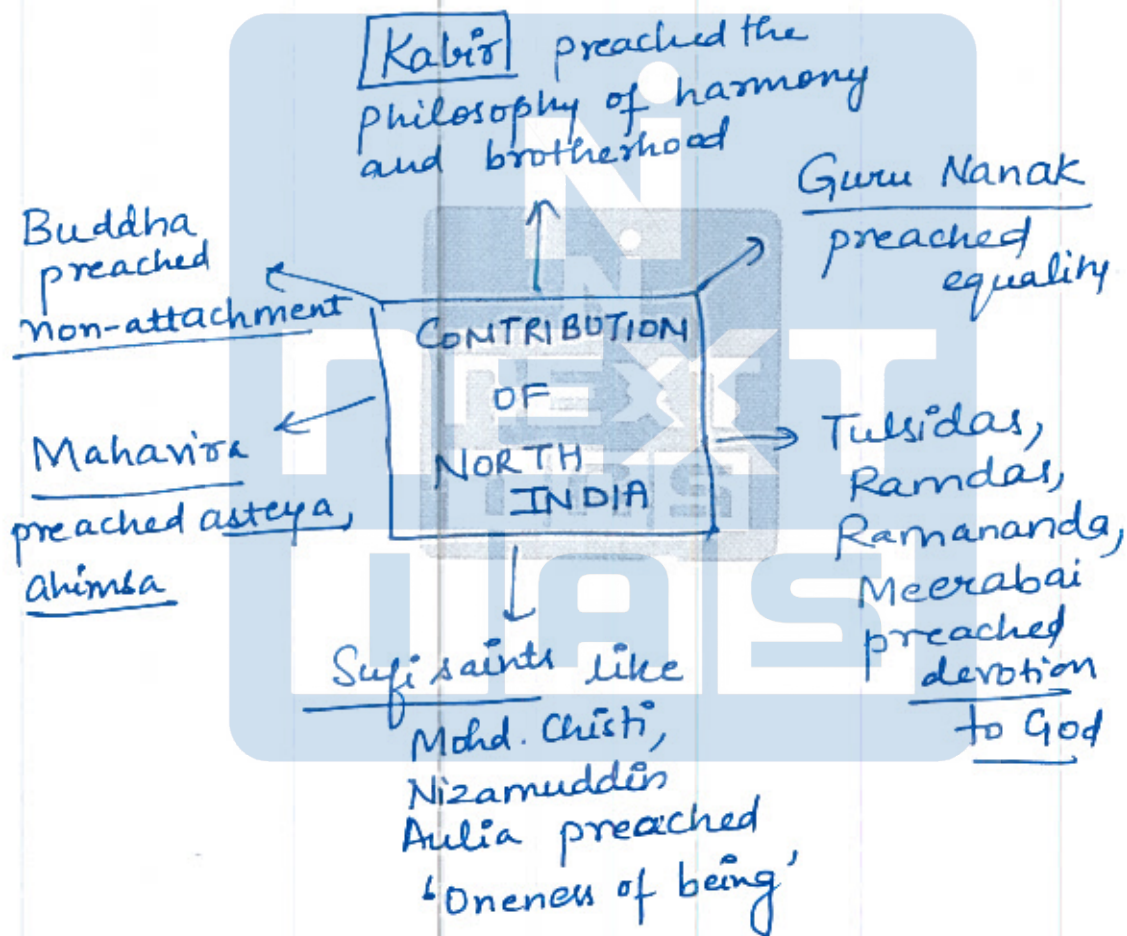 Kabir preached the
philosophy of harmony
and brotherhood
Guru Nanak
preached
equality
Buddha
preached
non-attachment
CONTRIBUTION
OF
NORTH
INDIA
Mahavira
preached asteya,
ahimsa
Tulsidas,
Ramdas,
Ramananda,
Meerabai
preached
devotion
to God
Sufi saints like
Mohd. Chisti,
Nizamuddin
Aulia preached
'Oneness of being'
NEXT
IAS